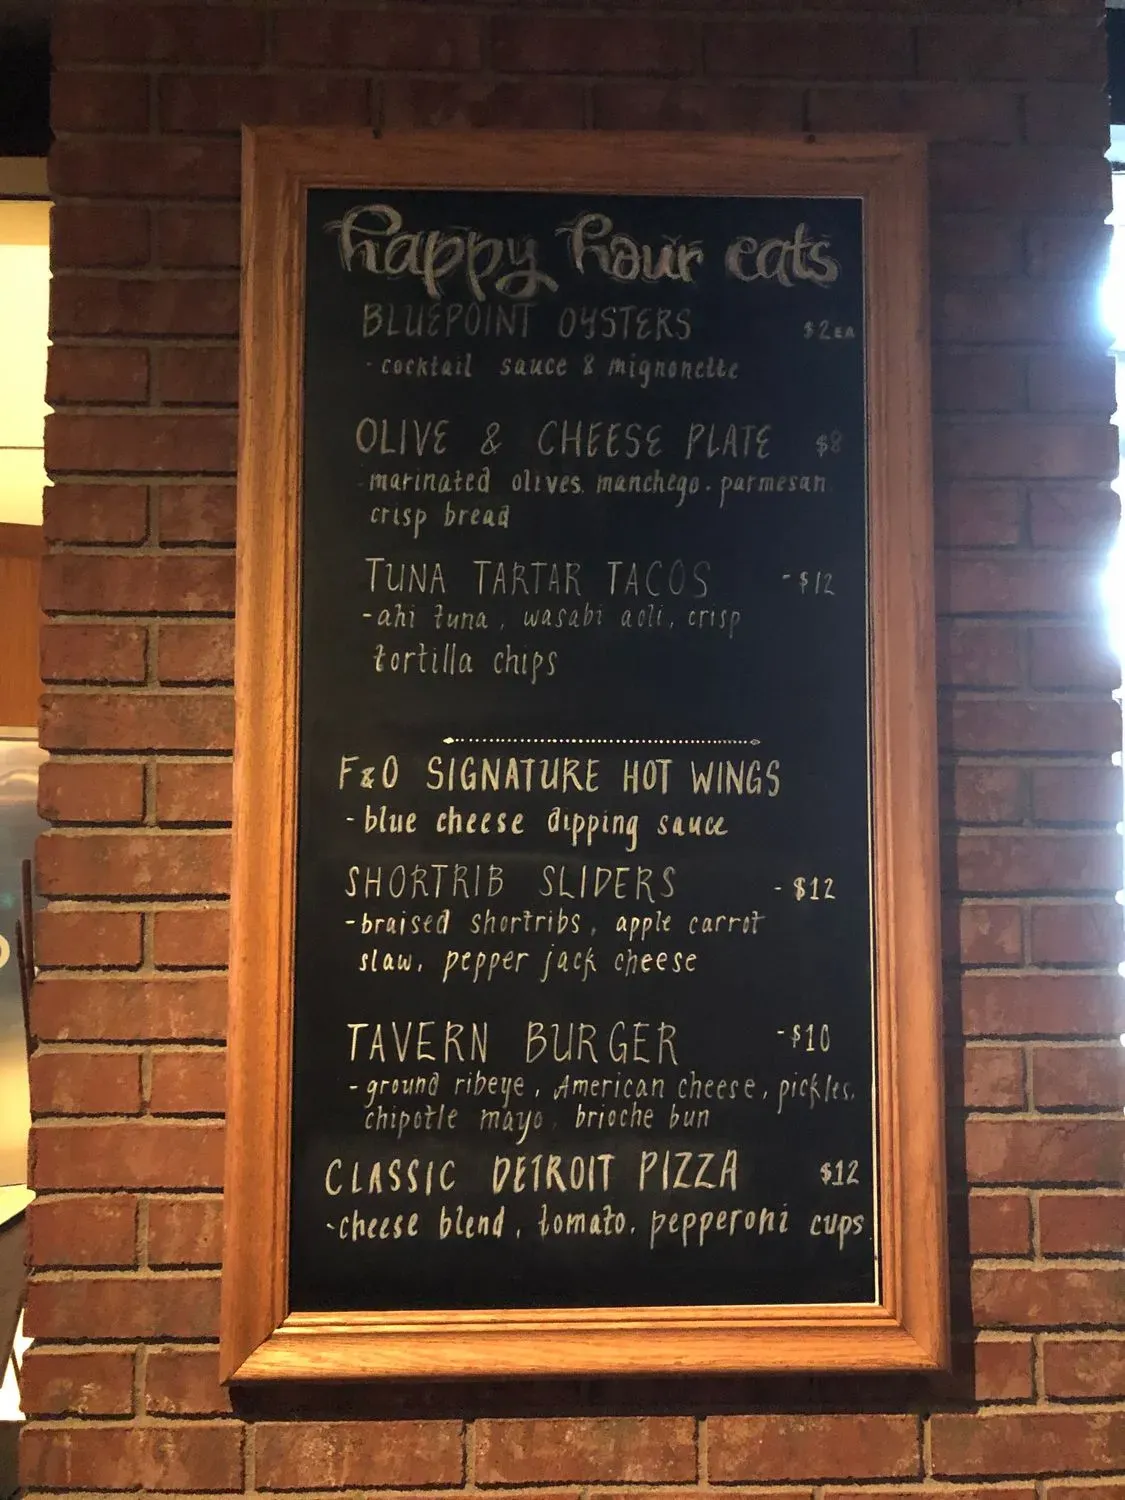 happy hour eats
BLUEPOINT OYSTERS $2EA
- cocktail sauce & mignonette
OLIVE & CHEESE PLATE $8
- marinated olives, manchego, parmesan
crisp bread
TUNA TARTAR TACOS - $12
- ahi tuna, wasabi aoli, crisp
tortilla chips
F&O SIGNATURE HOT WINGS
- blue cheese dipping sauce
SHORTRIB SLIDERS - $12
- braised shortribs, apple carrot
slaw, pepper jack cheese
TAVERN BURGER - $10
- ground ribeye, American cheese, pickles,
chipotle mayo, brioche bun
CLASSIC DETROIT PIZZA $12
- cheese blend, tomato, pepperoni cups